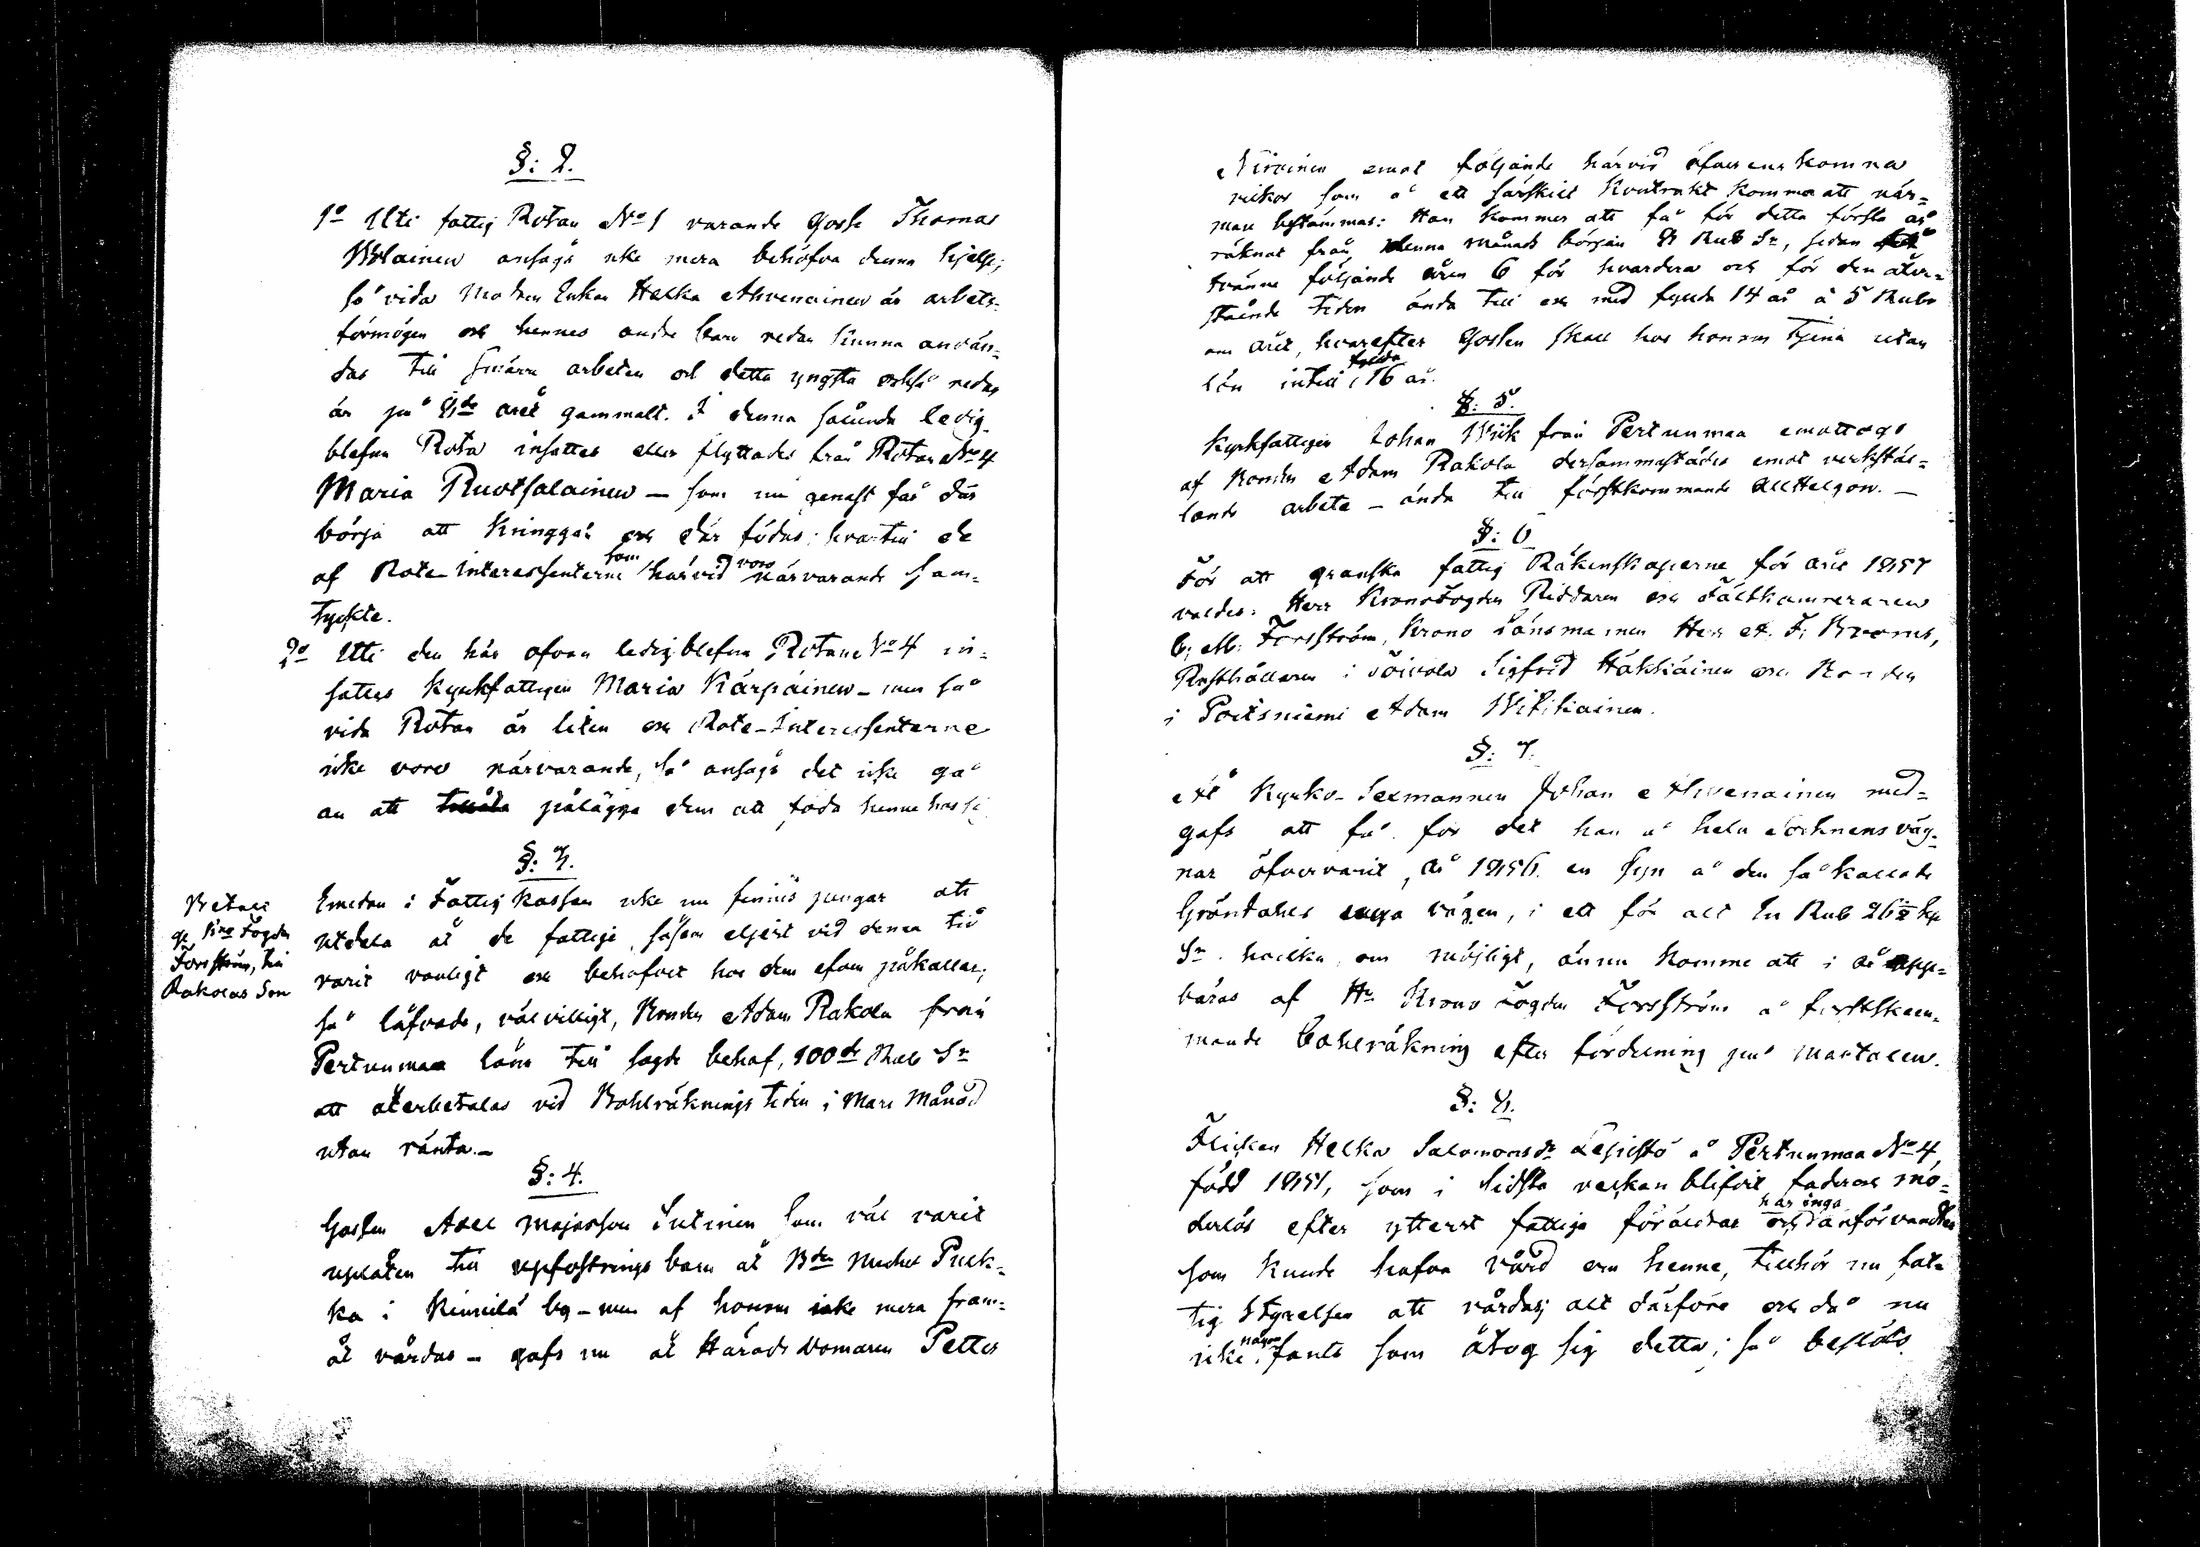 §: 2.
1o Uti fattig Rotan No 1 varande Gosse Thomas
Wilainen ansågs icke mera behöfva denna hjelp;
så vida Modren Enkan Helka Ahvenainen är arbets-
förmögen och hennes andra barn redan kunna använ-
das till smärre arbeten och detta yngsta också redan
är på 8de året gammalt. I denna sålunda ledig
blefna Rota insattes eller flyttades från Rotan No 4
Maria Ruotsalainen — som nu genast får där
börja att kringgå och där födas; hvartill de
af Rote-Interessenterne som härvid voro närvarande sam-
tyckte.
2o Uti den här ofvan ledigblefna Rotan No 4 in-
sattes Kyrkfattigen Maria Kärpäinen - men så
vida Rotan är liten och Rote-Interessenterne
icke voro närvarande, så ansågs det icke gå
an att pålägga dem att föda henne hos sig
§: 3.
Betalt
af Kro Fogden
Forsström, till
Rakolas Son
Emedan i Fattig Kassan icke nu finnes pengar att
utdela åt de fattige, såsom eljest vid denna tid
varit vanligt och behofvet hos dem äfven påkallar;
så låfvade, välvilligt, Bonden Adam Rakola från
Pertunmaa låna till sagde behof, 100de Rub Sr
att återbetalas vid Bohlräknings tiden i Mars Månad
utan ränta.—
§: 4.
Gossen Abel Majasson Sutinen som väl varit
uplåten till upfostrings barn åt Bden Michel Puck-
ka i Kimilä by - men af honom icke mera fram-
åt vårdas - gafs nu åt Härads Domaren Petter
Niroinen emot följande härvid öfverenskomna
vilkor som å ett särskilt Kontrakt komma att när-
mare bestämmas: Han kommer att få för detta första år
räknat från denna månads början 8 Rub Sr, sedan
tvänne följande åren 6 för hvardera och för den åter-
stående tiden ända till och med fyllda 14 år à 5 Rub
om året, hvarefter Gossen skall hos honom tjena utan
lön intill fyllda 16 år.
§: 5.
Kyrkfattigen Johan Wiik från Pertunmaa emottogs
af Bonden Adam Rakola dersammastädes emot verkstäl-
lande arbete - ända till förstkommande AllHelgon. —
§: 6
För att granska fattig Räkenskaperne för året 1857
valdes: Herr KronoFogden Riddaren och Fältkamreraren
C. M. Forsström, Krono Länsmannen Herr A. F. Brorus,
Rusthållaren i Joivola Sigfrid Häkkäinen och Bonden
i Poitsniemi Adam Wikikainen.
§: 7.
At Kyrko-Sexmannen Johan Ahvenainen med-
gafs att få för det han å hela Socknens väg-
nar öfvervarit, år 1856 en Syn å den så kallade
Gröndahls väga vägen, i ett för allt En Rub 26 2/7 kp
Sr. hvilka, om möjligt, ännu komme att i år upp-
bäras af Hr Krono Fogden Forsström å förstkom-
mande Bohlräkning efter fördelning på mantalen.
§: 8.
Flickan Helka Salomonsdr Lepistö å Pertunmaa No 4,
född 1851, som i sidsta veckan blifvit fader och mo-
derlös efter ytterst fattige föräldrar och har inga anförvandter
som kunde hafva vård om henne, tillhör nu fat-
tig Styrelsen att vårdas; allt därföre och då nu
icke någon fants som åtog sig detta; så beslöts